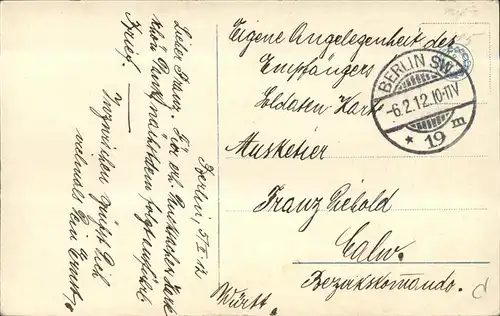 Berlin, 5/II 12
Lieber Franz! Für erh. Karte
besten Dank, nächstdem folgt
Brief.
Inzwischen grüßt Dich
vielmals Dein Ernst
Eigene Angelegenheit des
Empfängers
Soldaten Karte
Musketier
Franz Piebold
Calw.
Bezirkskomando.
Württ.
BERLIN SW
-6.2.12.10-11V
* 19 m